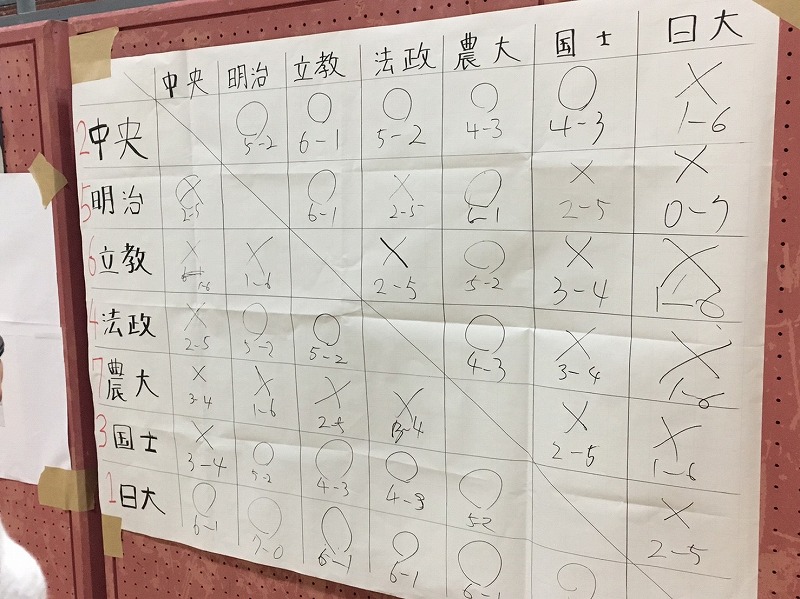 中央 明治 立教 法政 農大 国士 日大
2 中央 ○ 5-2 ○ 6-1 ○ 5-2 ○ 4-3 ○ 4-3 × 1-6
5 明治 × 2-5 ○ 6-1 × 2-5 ○ 6-1 × 2-5 × 0-7
6 立教 × 1-6 × 1-6 × 2-5 ○ 5-2 × 3-4 × 1-6
4 法政 × 2-5 ○ 5-2 ○ 5-2 ○ 4-3 × 3-4 × 1-6
7 農大 × 3-4 × 1-6 × 2-5 × 3-4 × 2-5 × 1-6
3 国士 × 3-4 ○ 5-2 ○ 4-3 ○ 4-3 ○ 5-2 × 2-5
1 日大 ○ 6-1 ○ 7-0 ○ 6-1 ○ 6-1 ○ 6-1 ○